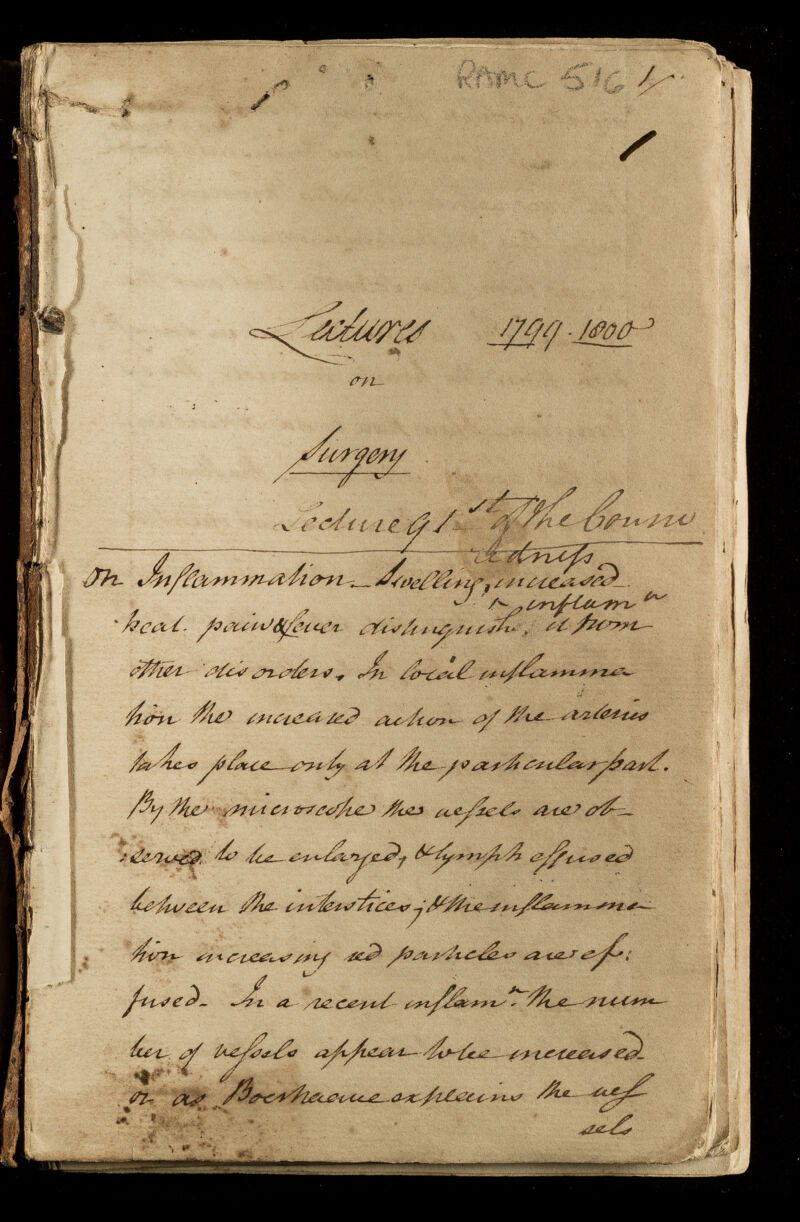 RAMC 516 1/
Lectures 1799-1800
on
Surgery
Lecture 91st of the Course
redness
On Inflammation_ Swelling, ^ increased
inflamn
heat. pain & fever distinguish, it from
other disorders. In local inflamma
tion the increased action of the arteries
takes place only at the particular part.
By the microscope the vessels are ob_
served to be enlarged, & lymph effused
between the interstices; & the inflamma
tion increasing red particles are ef:
fused. In a recent inflamn. the num
ber of vessels appear to be increased
or as Boerhaave explains the ves
sels